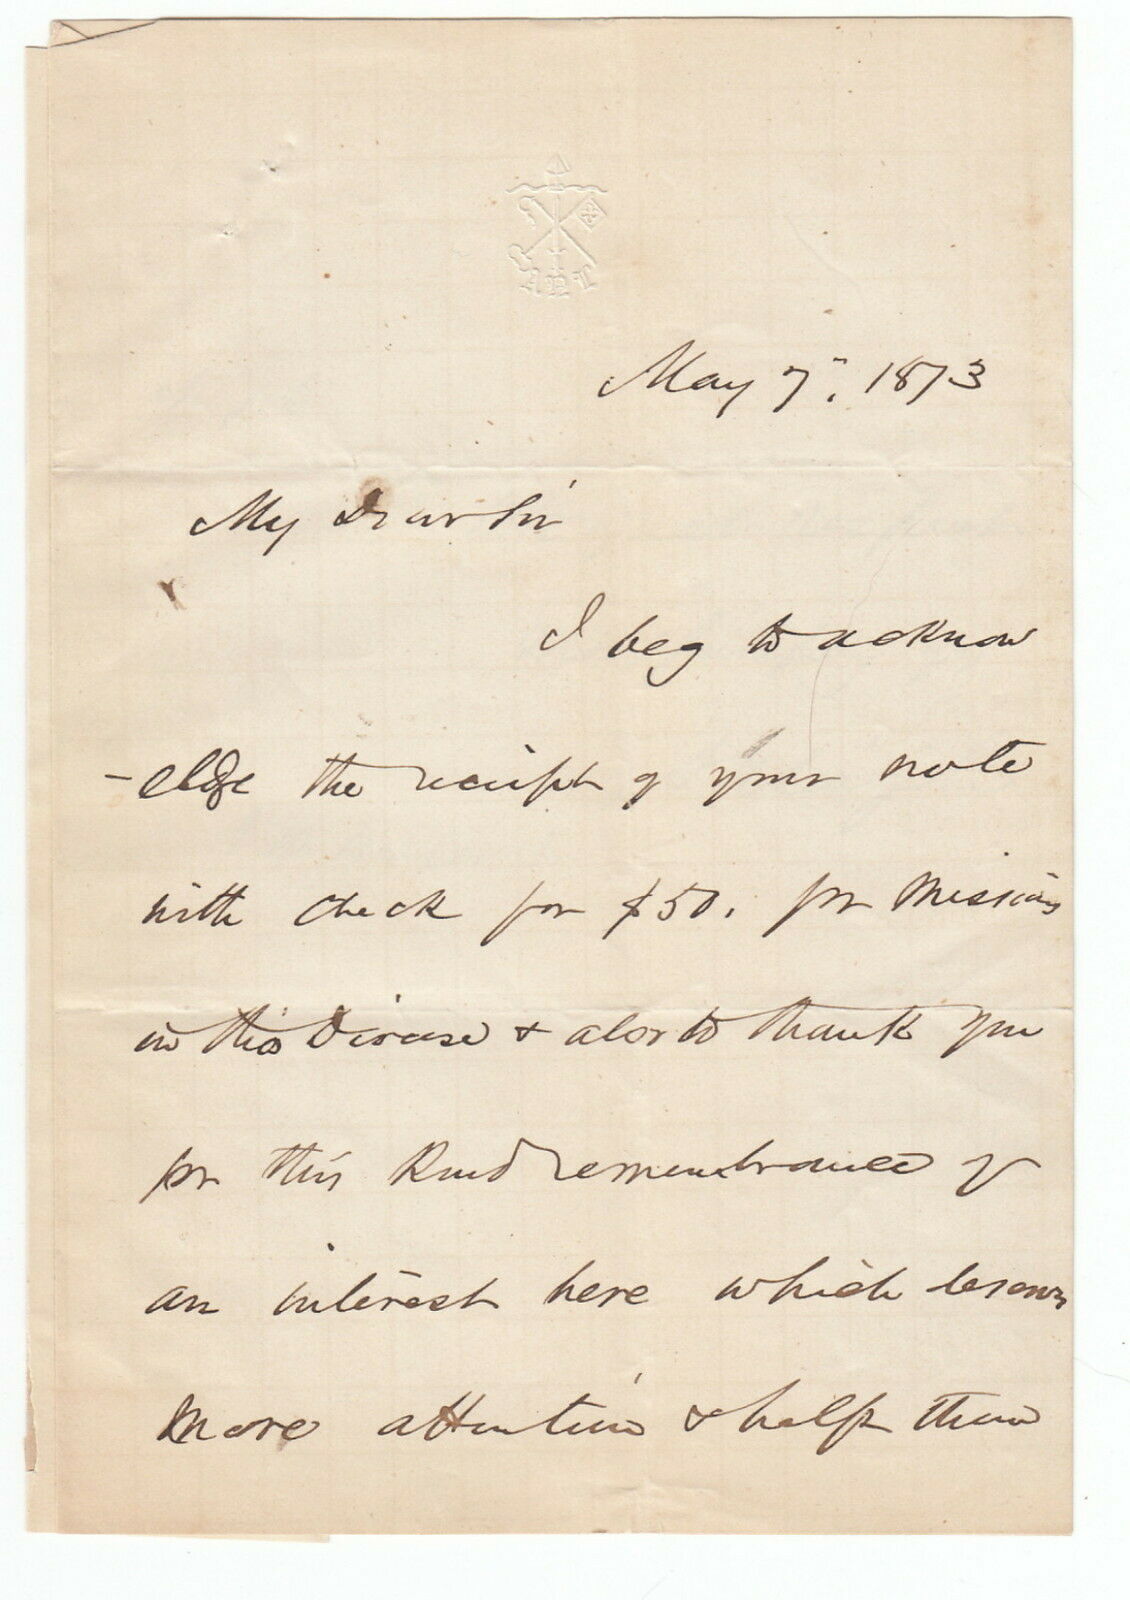 May 7", 1873
My Dear Sir
I beg to acknow
-eldge the receipt of your note
with check for $50. for Missions
in this Diocese & also to thank you
for this kind remembrance of
an interest here which deserves
more attention & help than